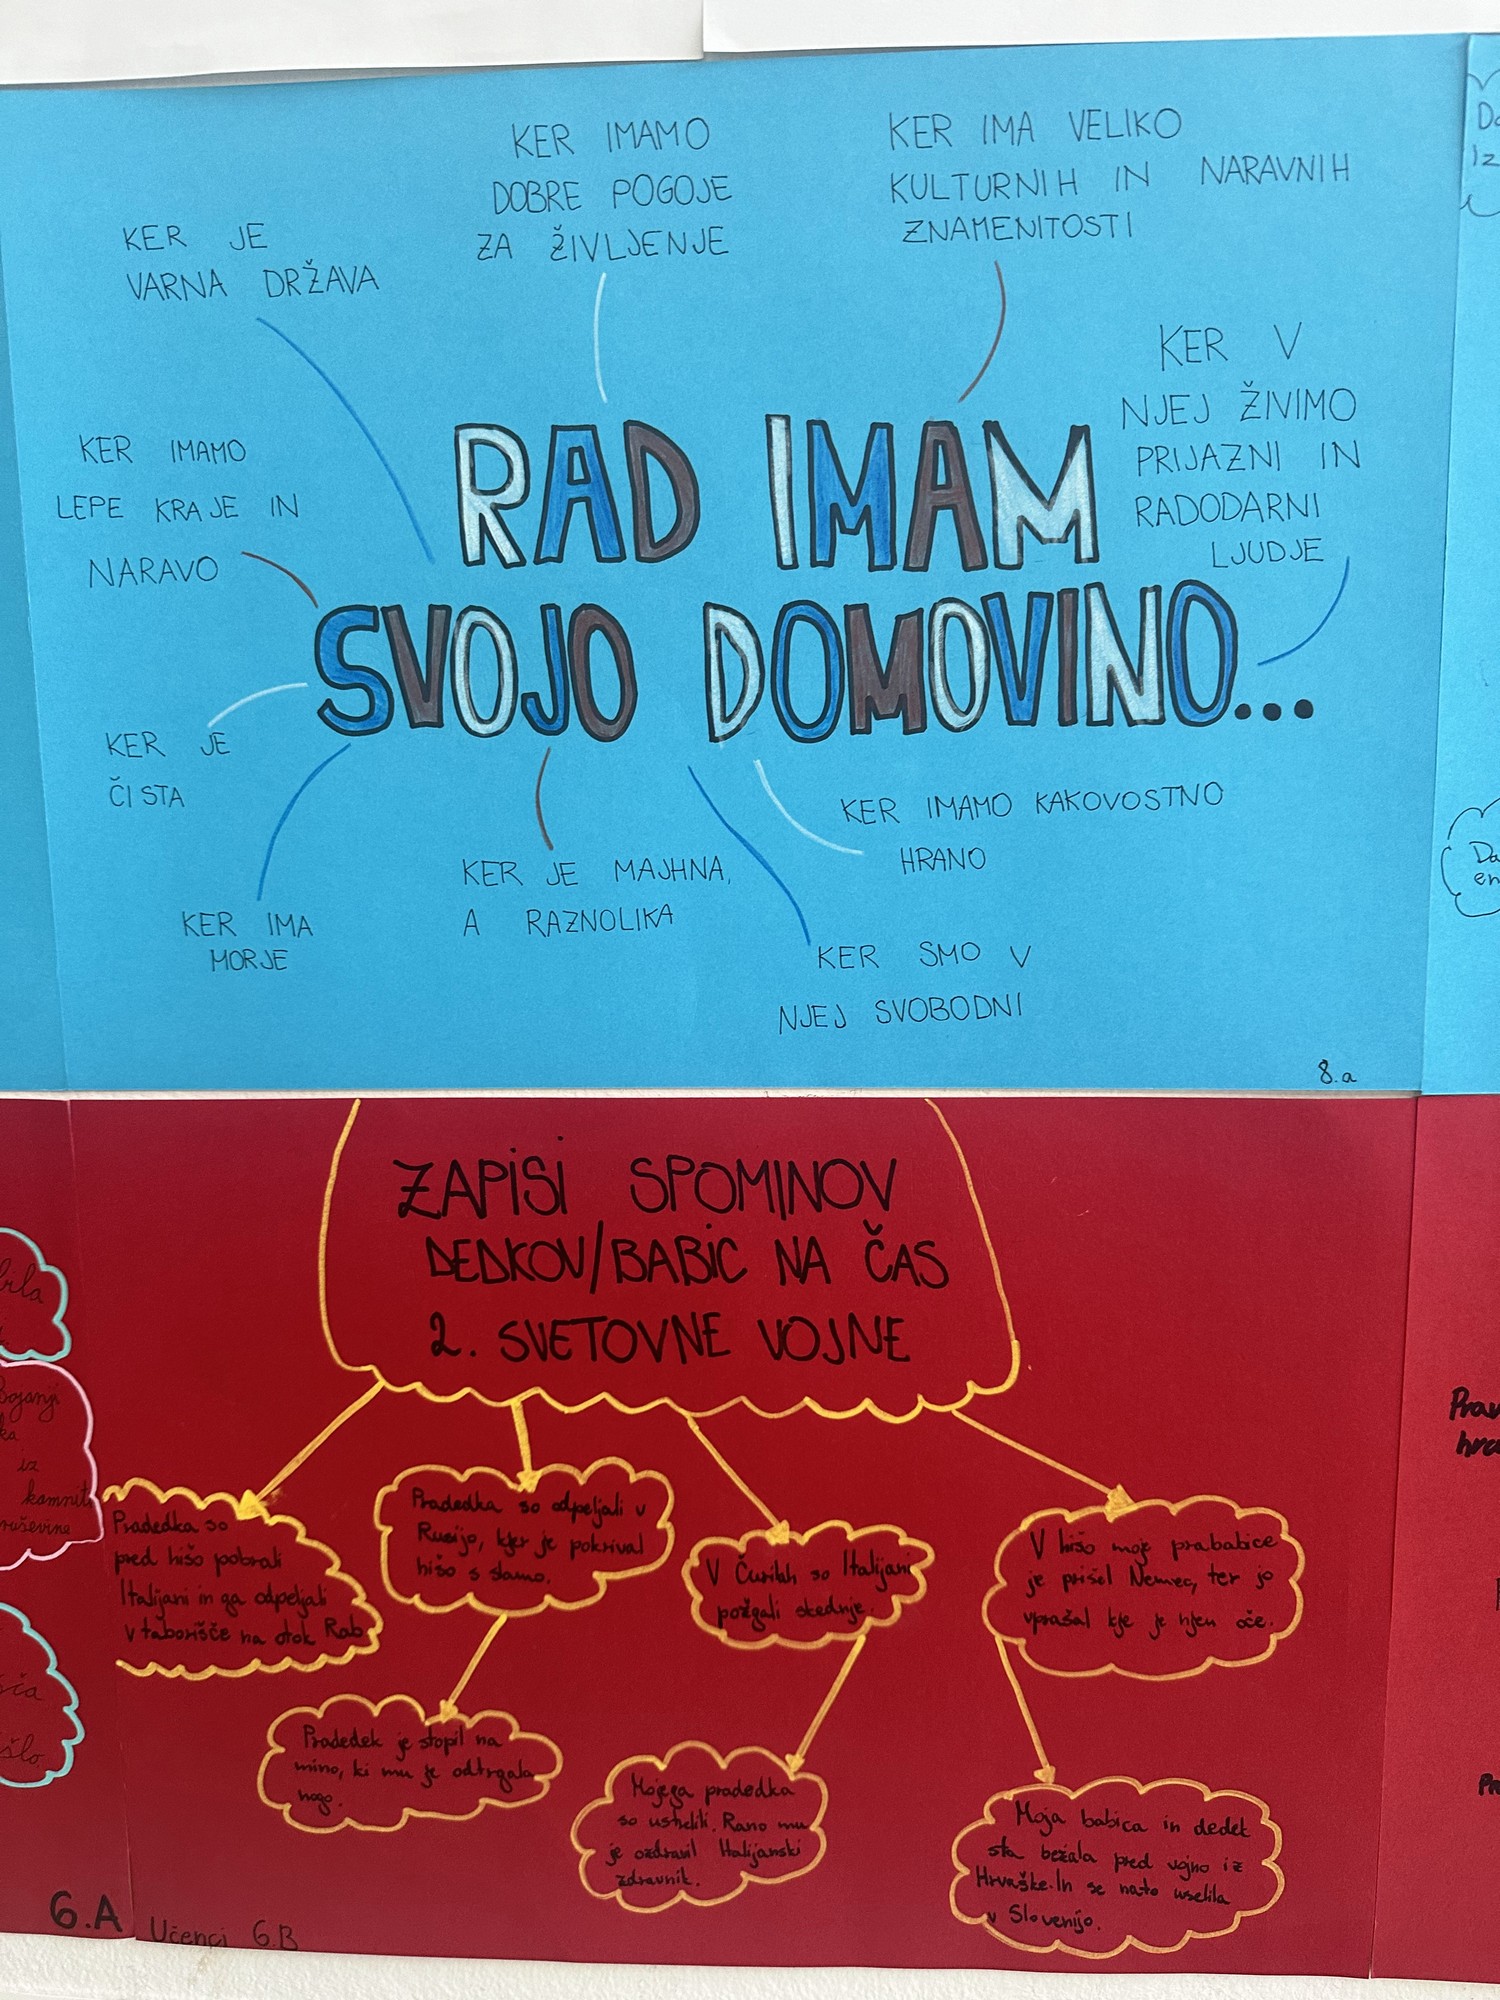 KER JE
VARNA DRŽAVA
KER IMAMO
DOBRE POGOJE
ZA ŽIVLJENJE
KER IMA VELIKO
KULTURNIH IN NARAVNIH
ZNAMENITOSTI
KER V
NJEJ ŽIVIMO
PRIJAZNI IN
RADODARNI
LJUDJE
KER IMAMO
LEPE KRAJE IN
NARAVO
RAD IMAM
SVOJO DOMOVINO...
KER JE
ČISTA
KER IMA
MORJE
KER JE MAJHNA,
A RAZNOLIKA
KER IMAMO KAKOVOSTNO
HRANO
KER SMO V
NJEJ SVOBODNI
8.a
Da
en
ZAPISI SPOMINOV
DEDKOV/BABIC NA ČAS
2. SVETOVNE VOJNE
iz
ruševine
Pradedka so
pred hišo pobrali
Italijani in ga odpeljali
v taborišče na otok Rab
Pradedka so odpeljali v
Rusijo, kjer je pokrival
hišo s slamo.
V Čurilah so Italijani
požgali skednje.
V hišo moje prababice
je prišel Nemec, ter jo
vprašal kje je njen oče.
Pradedek je stopil na
mino, ki mu je odtrgala
nogo.
Mojega pradedka
so ustrelili. Rano mu
je ozdravil Italijanski
zdravnik.
Moja babica in dedek
sta bežala pred vojno iz
Hrvaške. In se nato vselila
v Slovenijo.
6.A
Učenci 6.B